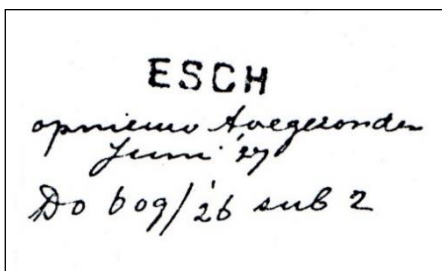 ESCH
opnieuw toegezonden
Juni '27
Do 609/'26 sub 2